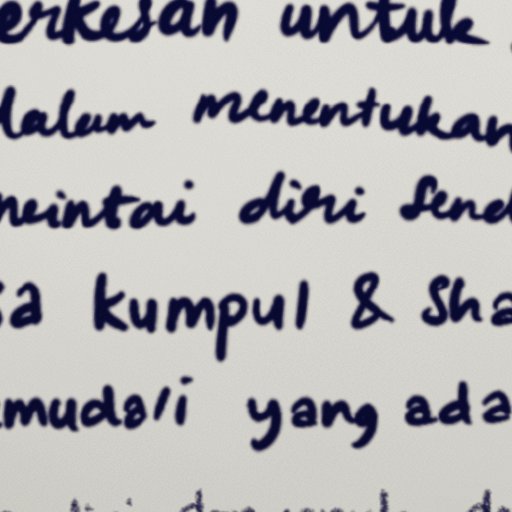 erkesan untuk
dalam menentukan
neintai diri send
sa kumpul & Sha
mudsli yang ada